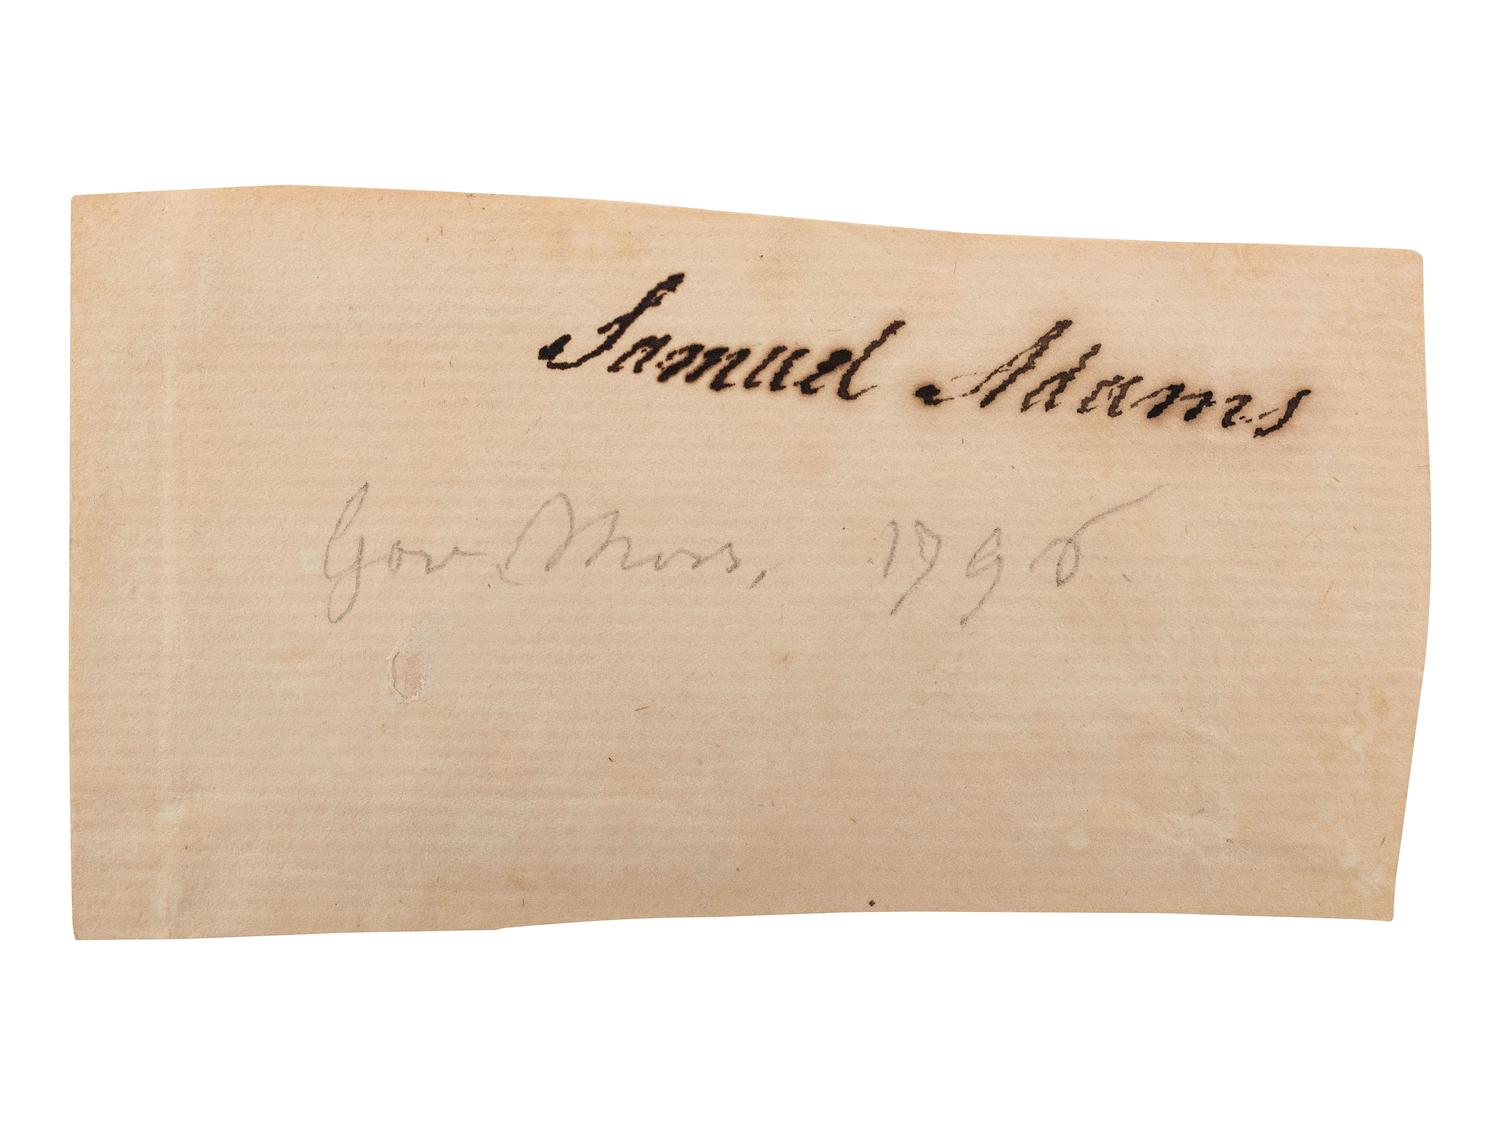 Samuel Adams
Gov. Mass, 1795.